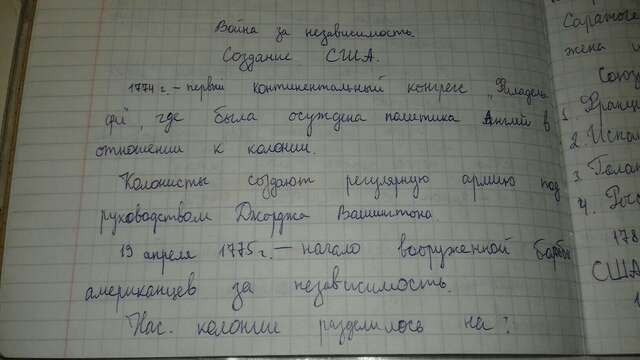 Война за независимость.
Создание США.
1774 г. – первый континентальный конгресс "Филадель
фи", где была осуждена политика Англии в
отношении к колонии.
Колонисты создают регулярную армию под
руководством Джорджа Вашингтона.
19 апреля 1775 г. – начало вооруженной борьбы
американцев за независимость.
Нас. колонии разделилось на?
Саратог
жена и
Союз
1. Франц
2. Испа
3. Голан
4. Рос
178
США